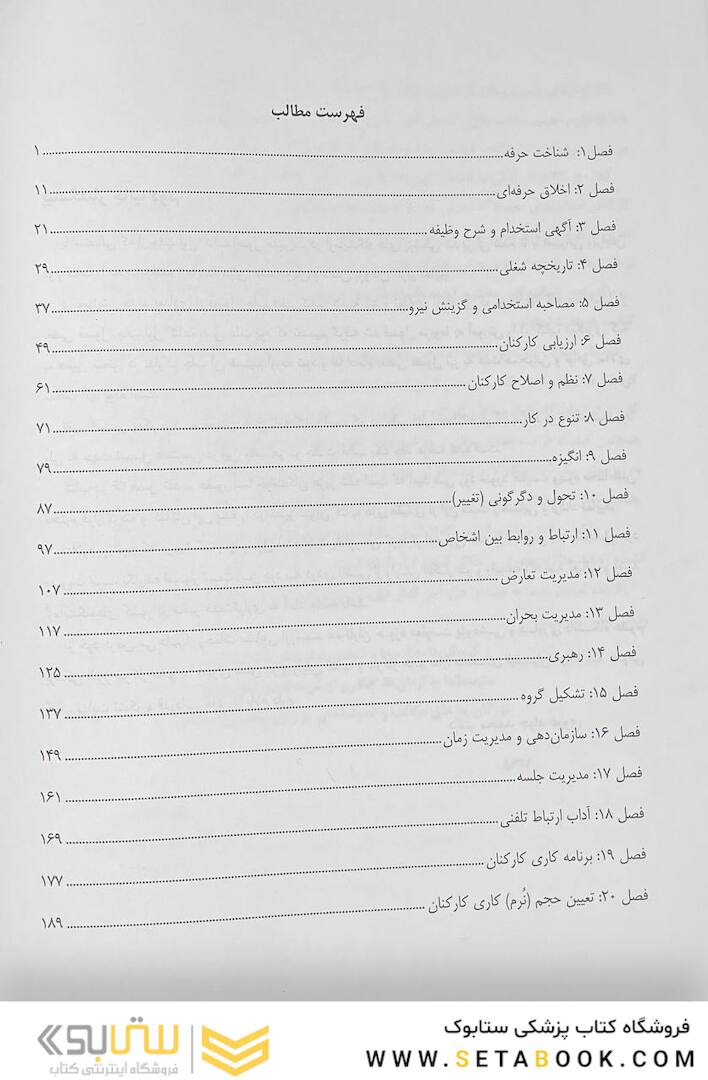 فهرست مطالب
فصل۱: شناخت حرفه......۱
فصل ۲: اخلاق حرفه‌ای......۱۱
فصل ۳: آگهی استخدام و شرح وظیفه......۲۱
فصل ۴: تاریخچه شغلی......۲۹
فصل ۵: مصاحبه استخدامی و گزینش نیرو......۳۷
فصل ۶: ارزیابی کارکنان......۴۹
فصل ۷: نظم و اصلاح کارکنان......۶۱
فصل ۸: تنوع در کار......۷۱
فصل ۹: انگیزه......۷۹
فصل ۱۰: تحول و دگرگونی (تغییر)......۸۷
فصل ۱۱: ارتباط و روابط بین اشخاص......۹۷
فصل ۱۲: مدیریت تعارض......۱۰۷
فصل ۱۳: مدیریت بحران......۱۱۷
فصل ۱۴: رهبری......۱۲۵
فصل ۱۵: تشکیل گروه......۱۳۷
فصل ۱۶: سازمان‌دهی و مدیریت زمان......۱۴۹
فصل ۱۷: مدیریت جلسه......۱۶۱
فصل ۱۸: آداب ارتباط تلفنی......۱۶۹
فصل ۱۹: برنامه کاری کارکنان......۱۷۷
فصل ۲۰: تعیین حجم (نُرم) کاری کارکنان......۱۸۹
فروشگاه کتاب پزشکی ستابوک
WWW.SETABOOK.COM
ستابوک
فروشگاه اینترنتی کتاب